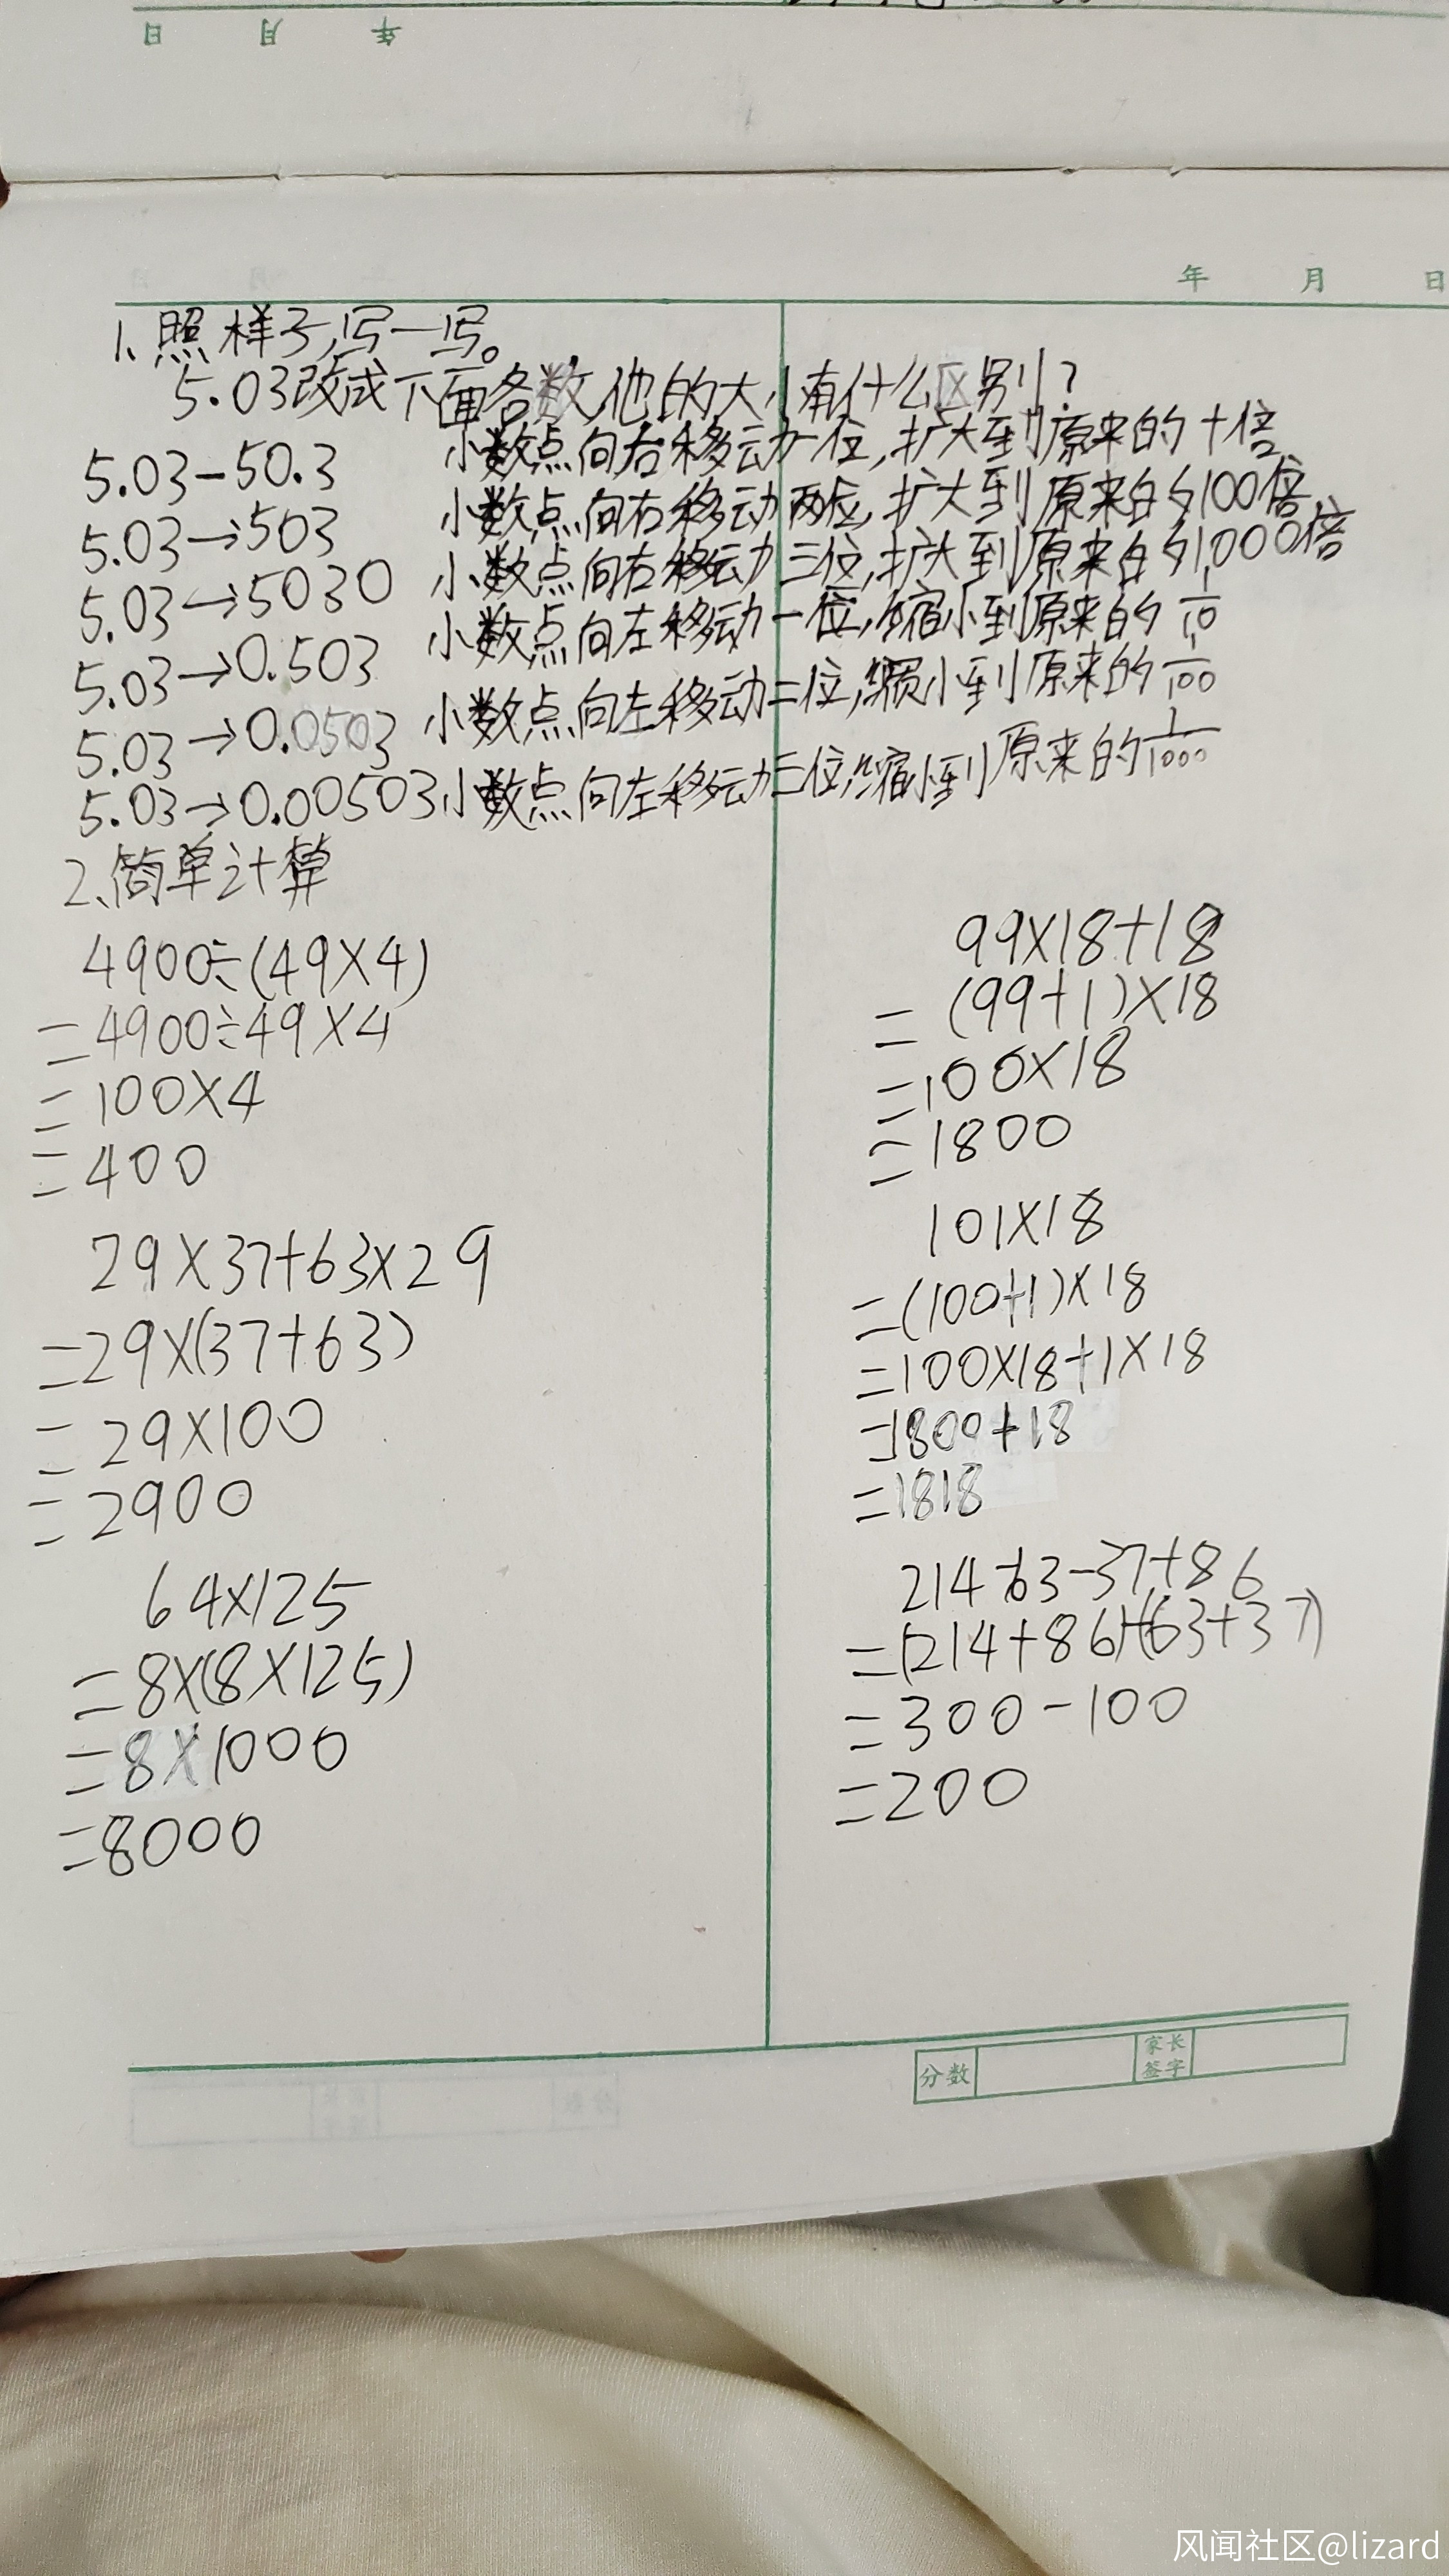 年 月 日
年 月 日
1、照样子,写一写。
5.03改成下面各数,他的大小有什么区别?
5.03-50.3 小数点向右移动一位,扩大到原来的十倍
5.03→503 小数点向右移动两位,扩大到原来的100倍
5.03→5030 小数点向右移动三位,扩大到原来的1000倍
5.03→0.503 小数点向左移动一位,缩小到原来的1/10
5.03→0.0503 小数点向左移动二位,缩小到原来的1/100
5.03→0.00503 小数点向左移动三位,缩小到原来的1/1000
2、简单计算
4900÷(49×4)
=4900÷49×4
=100×4
=400
29×37+63×29
=29×(37+63)
=29×100
=2900
64×125
=8×(8×125)
=8×1000
=8000
99×18+18
=(99+1)×18
=100×18
=1800
101×18
=(100+1)×18
=100×18+1×18
=1800+18
=1818
214-63-37+86
=(214+86)-(63+37)
=300-100
=200
分数 家长签字
风闻社区@lizard